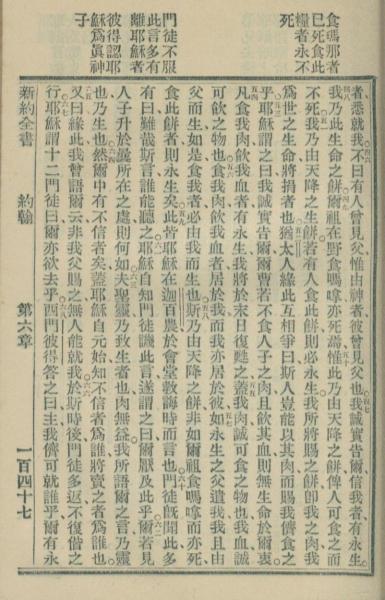 食嗎那者
已死食此
糧者永不
死
門徒不服
此言多有
離耶穌者
彼得認耶
穌爲眞神
子
者悉就我不曰有人曾見父惟由神者彼曾見父也我誠實告爾信我者有永生
我乃此生命之餅爾祖在野食嗎嗱亦死惟此乃由天降之餅俾人可食之而
不死我乃由天降之生餅若有人食此餅則必永生我所將賜之餅卽我之肉我
爲世之生命將捐者也猶太人緣此互相爭曰斯人豈能以其肉而賜我儕食之
乎耶穌謂之曰我誠實告爾爾曹若不食人子之肉且飲其血則無生命於爾衷
凡食我肉飲我血者有永生我將於末日復甦之蓋我肉誠可食之物我血誠
可飲之物也食我肉飲我血者居於我而我亦居於彼如永生之父遣我我且由
父而生如是食我者必由我而生也斯乃由天降之餅非如爾祖食嗎嗱而亦死
食此餅者則永生矣此皆耶穌在迦百農於會堂教誨時而言也門徒旣聞此多
有曰難哉斯言誰能聽之耶穌自知門徒譏此言遂謂之曰爾厭及此乎爾若見
人子升於曩所在之處則何如夫聖靈乃致生者也肉無益我所語爾之言乃靈
也乃生也然爾中有不信者矣蓋耶穌自元始知不信者爲誰將賣之者爲誰也
又曰緣此我嘗語爾云非我父賜之無人能就我於斯時後門徒多返不復偕之
行耶穌謂十二門徒曰爾亦欲去乎西門彼得答之曰主我儕可就誰乎爾有永
新約全書　約翰　第六章　一百四十七